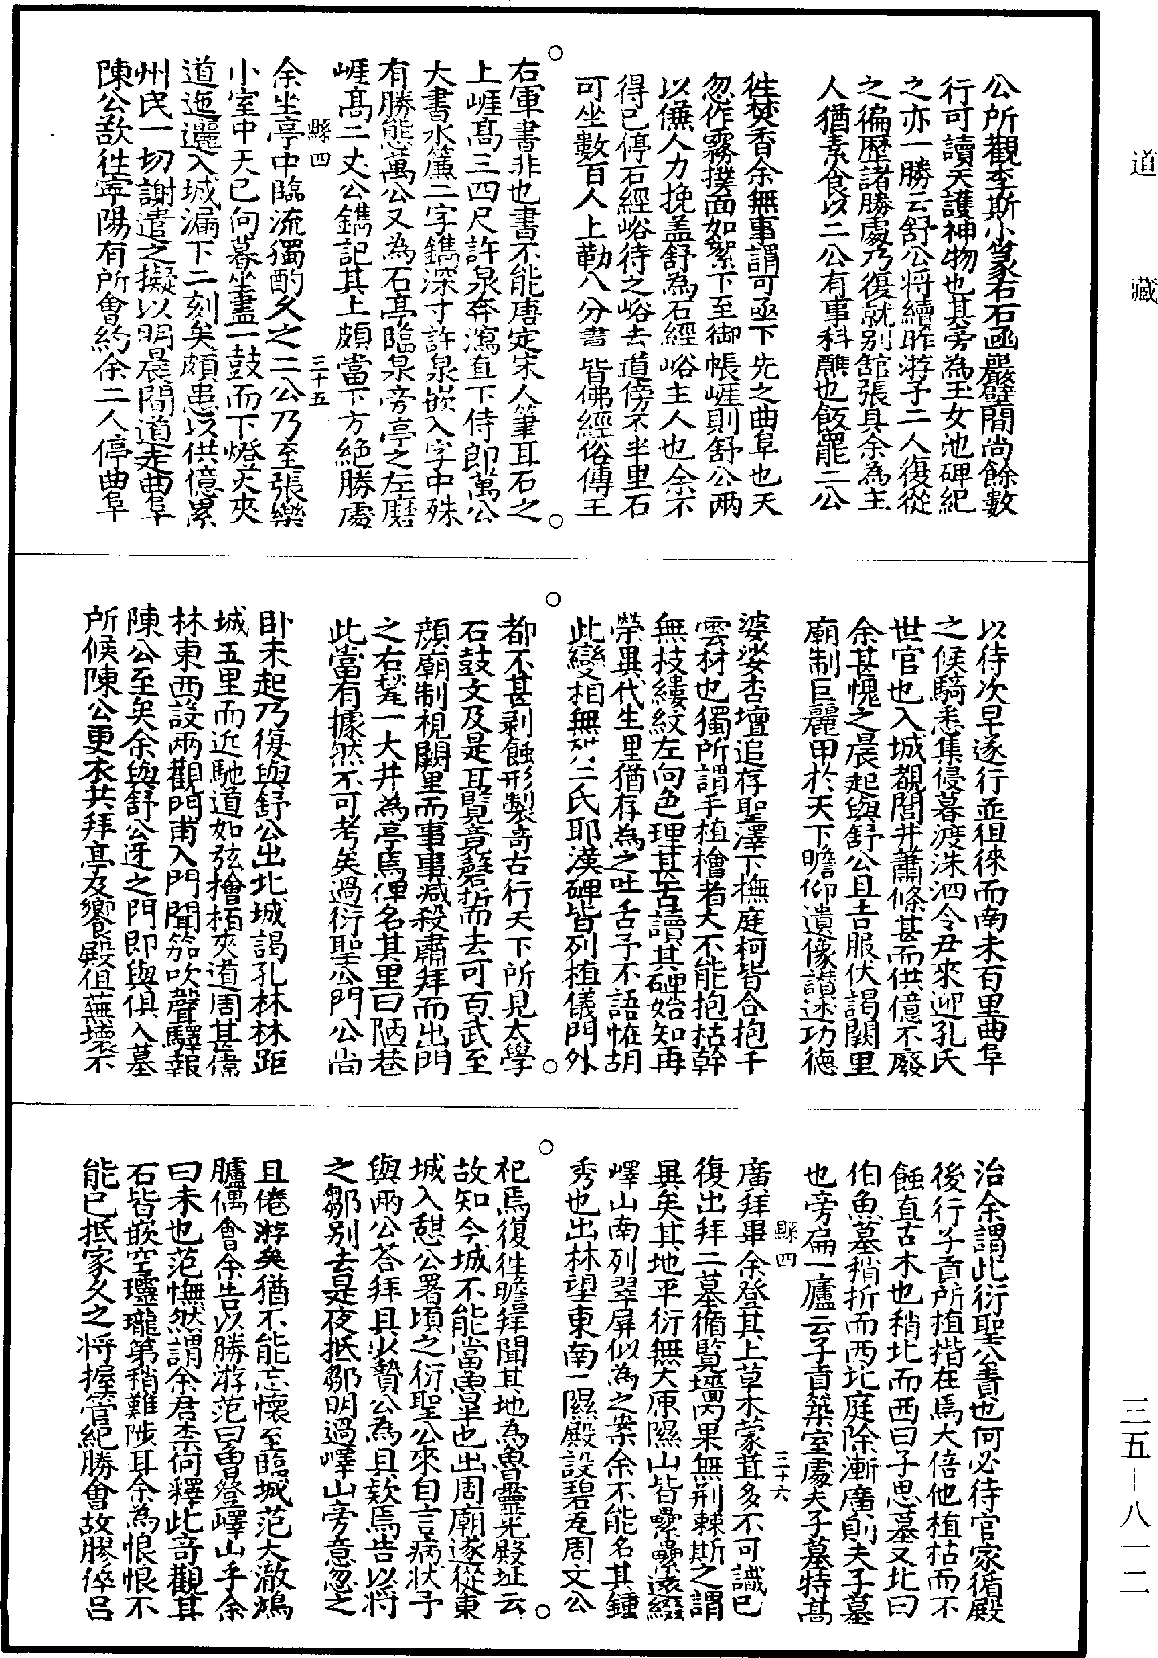 道藏
公所觀李斯小篆石石函嚴壁間尚餘數
行可讀天護神物也其旁為玉女池碑紀
之亦一勝云舒公將續昨游予二人復從
之徧歷諸勝處乃復就別舘張具余為主
人猶素食以二公有事科醮也飯罷二公
徃焚香余無事謂可亟下先之曲阜也天
忽作霧撲面如絮下至御帳崕則舒公兩
以傔人力挽盖舒為石經峪主人也余不
得已停石經峪待之峪去道傍不半里石
可坐數百人上勒八分書皆佛經俗傳王
右軍書非也書不能唐定宋人筆耳石之
上崕髙三四尺許泉奔瀉直下侍郎萬公
大書水簾二字鐫深寸許泉嵌入字中殊
有勝態萬公又為石亭臨泉旁亭之左磨
崕髙二丈公鐫記其上頗當下方絶勝處
縣四
三十五
余坐亭中臨流獨酌久之二公乃至張樂
小室中天已向暮坐盡一鼓而下燈炎夾
道迤邐入城漏下二刻矣頗患以供億累
州民一切謝遣之擬以明晨間道走曲阜
陳公故徃寜陽有所會約余二人停曲阜
以待次早遂行並徂徠而南未百里曲阜
之候騎悉集侵暮渡洙泗令尹來迎孔氏
世官也入城覩閭井蕭條甚而供億不廢
余甚愧之晨起與舒公且吉服伏謁闕里
廟制巨麗甲於天下瞻仰遺像讃述功德
婆娑杏壇追存聖澤下撫庭柯皆合抱千
雲材也獨所謂手植檜者大不能抱枯幹
無技縷紋左向色理甚古讀其碑始知再
榮異代生里猶存為之吐舌予不語恠胡
此變相無乃二氏耶漢碑皆列植儀門外
都不甚剥蝕形製奇古行天下所見太學
石鼓文及是耳覽竟磬折而去可百武至
顔廟制視闕里而事事减殺肅拜而出門
之右甃一大井為亭焉俾名其里曰陋巷
此當有據然不可考矣過衍聖公門公尚
卧未起乃復與舒公出北城謁孔林林距
城五里而近馳道如弦檜栢夾道周甚僃
林東西設兩觀門甫入門聞笳吹聲驛報
陳公至矣余與舒公迓之門即與俱入墓
所候陳公更衣共拜亭及饗殿徂蕪壞不
治余謂此衍聖公責也何必待官家循殿
後行子貢所植揩在焉大倍他植枯而不
蝕直古木也稍北而西曰子思墓又北曰
伯魚墓稍折而西北庭除漸廣則夫子墓
也旁扁一廬云子貢築室處夫子墓特髙
縣四
三十六
廣拜畢余登其上草木蒙茸多不可識已
復出拜二墓循覽壖內果無荆棘斯之謂
異矣其地平衍無大原隰山皆纍纍逺綴
嶧山南列翠屏似為之案余不能名其鍾
秀也出林望東南一隰殿設碧瓦周文公
祀焉復徃瞻拜聞其地為魯靈光殿址云
故知今城不能當魯半也出周廟遂從東
城入憇公署頃之衍聖公來自言病狀予
與兩公答拜具少贄公為具欵焉告以將
之鄒别去是夜抵鄒明過嶧山旁意忽之
且倦游矣猶不能忘懷至臨城范大澈鴻
臚偶會余告以勝游范曰曾登嶧山乎余
曰未也范憮然謂余君柰何釋此奇觀其
石皆嵌空瓏瓏第稍難陟耳余為恨恨不
能已抵家久之將握管紀勝會故膠倅呂
三五—八一二